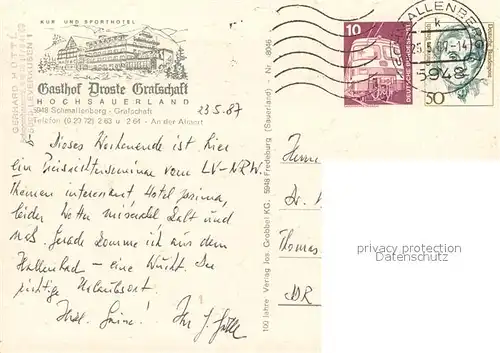 KUR UND SPORTHOTEL
Gasthof Droste Grafschaft
HOCHSAUERLAND
5948 Schmallenberg - Grafschaft
Telefon (0 29 72) 2 63 u 2 64 - An der Almert
23.5.87
Dieses Wochenende ist hier
ein vom LV-NRW.
Themen interessant Hotel prima,
leider Wetter miserabel kalt und
naß. Gerade komme ich aus dem
Hallenbad – eine Wucht. Der
richtige Urlaubsort.
Herzl. Grüße! Ihr J.
100 Jahre Verlag Jos. Grobbel KG, 5948 Fredeburg (Sauerland) Nr. 8046
10
DEUTSCHE BUNDESPOST
50
SCHMALLENBERG
25.5.87-14
5948
Herrn
Dr.
Thomas
DDR
privacy protection
Datenschutz